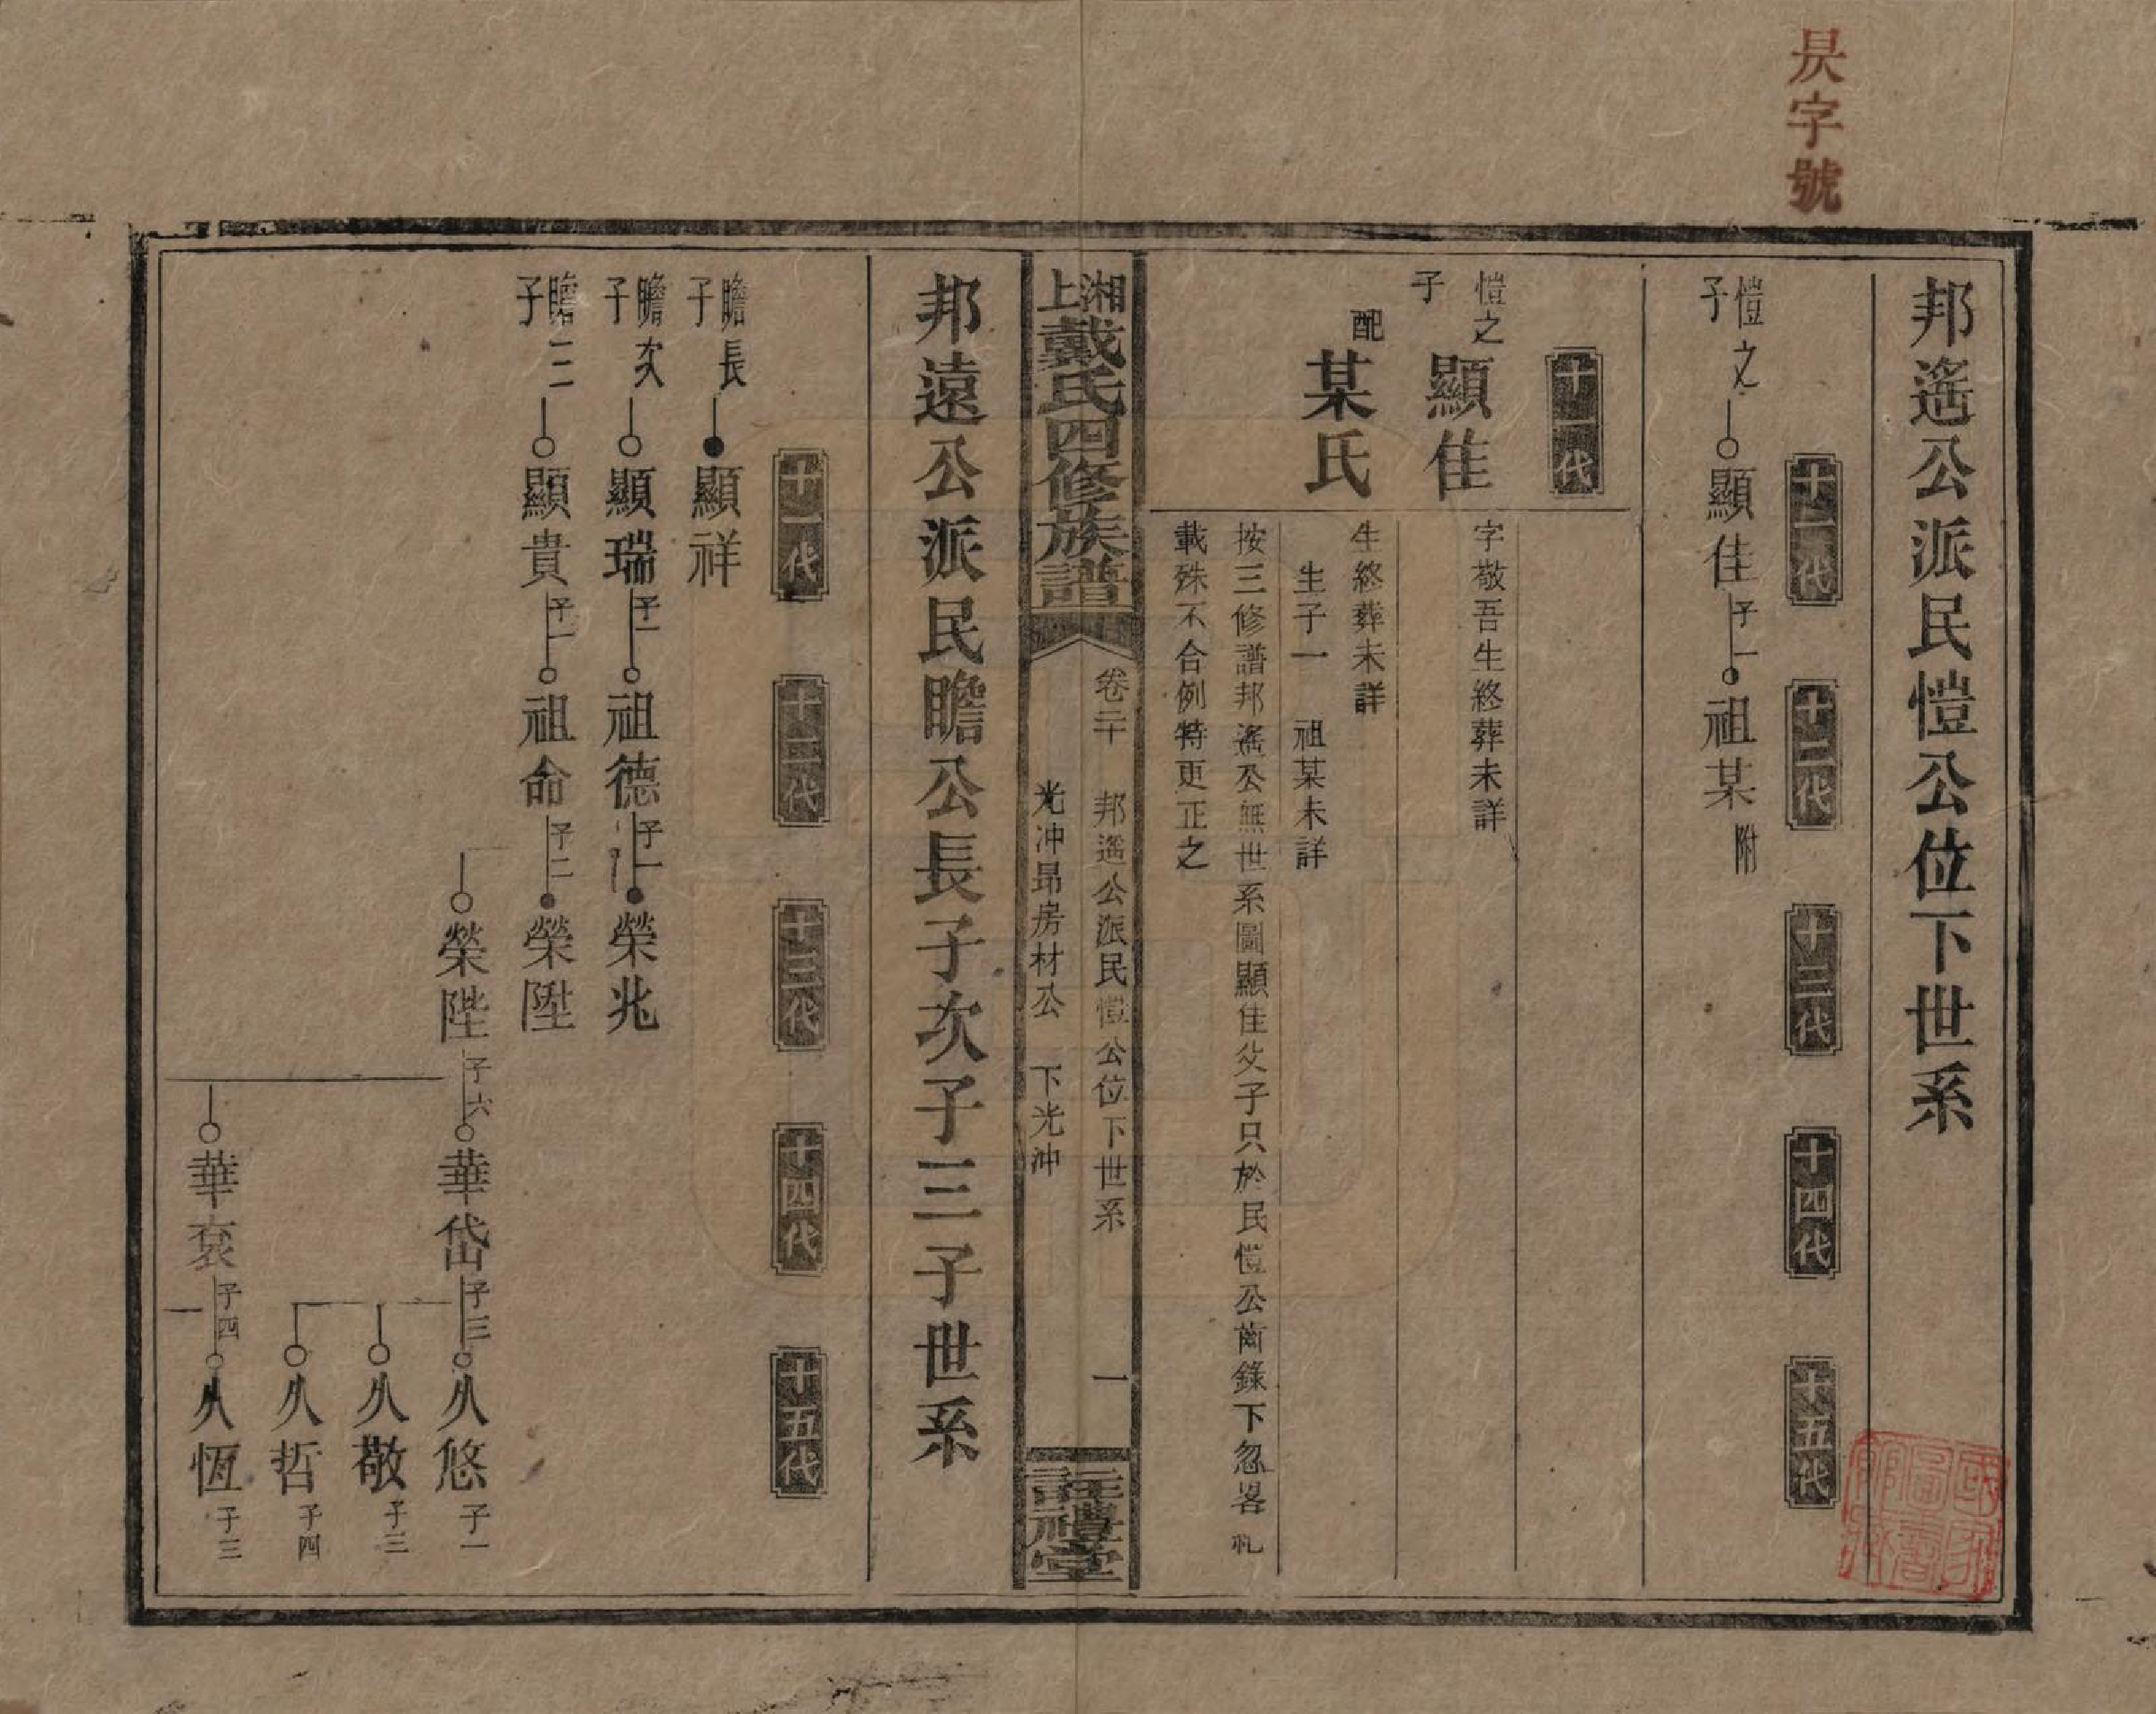 昃字號
邦遙公派民愷公位下世系
十一代
十二代
十三代
十四代
十五代
愷之子
顯佳
子一
祖某
附
十一代
愷之子
顯佳
字敬吾生終葬未詳
配
某氏
生終葬未詳
生子一 祖某未詳
按三修譜邦遙公無世系圖顯佳父子只於民愷公齒錄下忽畧
載殊不合例特更正之
湘上戴氏四修族譜
卷二十 邦遙公派民愷公位下世系
光冲昻房材公 下光冲
一
註禮堂
邦遠公派民瞻公長子次子三子世系
十一代
十二代
十三代
十四代
十五代
瞻長子
顯祥
瞻次子
顯瑞
子一
祖德
子一
榮兆
瞻三子
顯貴
子一
祖命
子二
榮陞
榮陛
子六
華岱
子三
久悠
子一
久敬
子三
久哲
子四
華袞
子四
久恆
子三